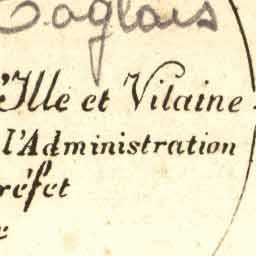 Coglais
'Ille et Vilaine
l'Administration
réfet
e